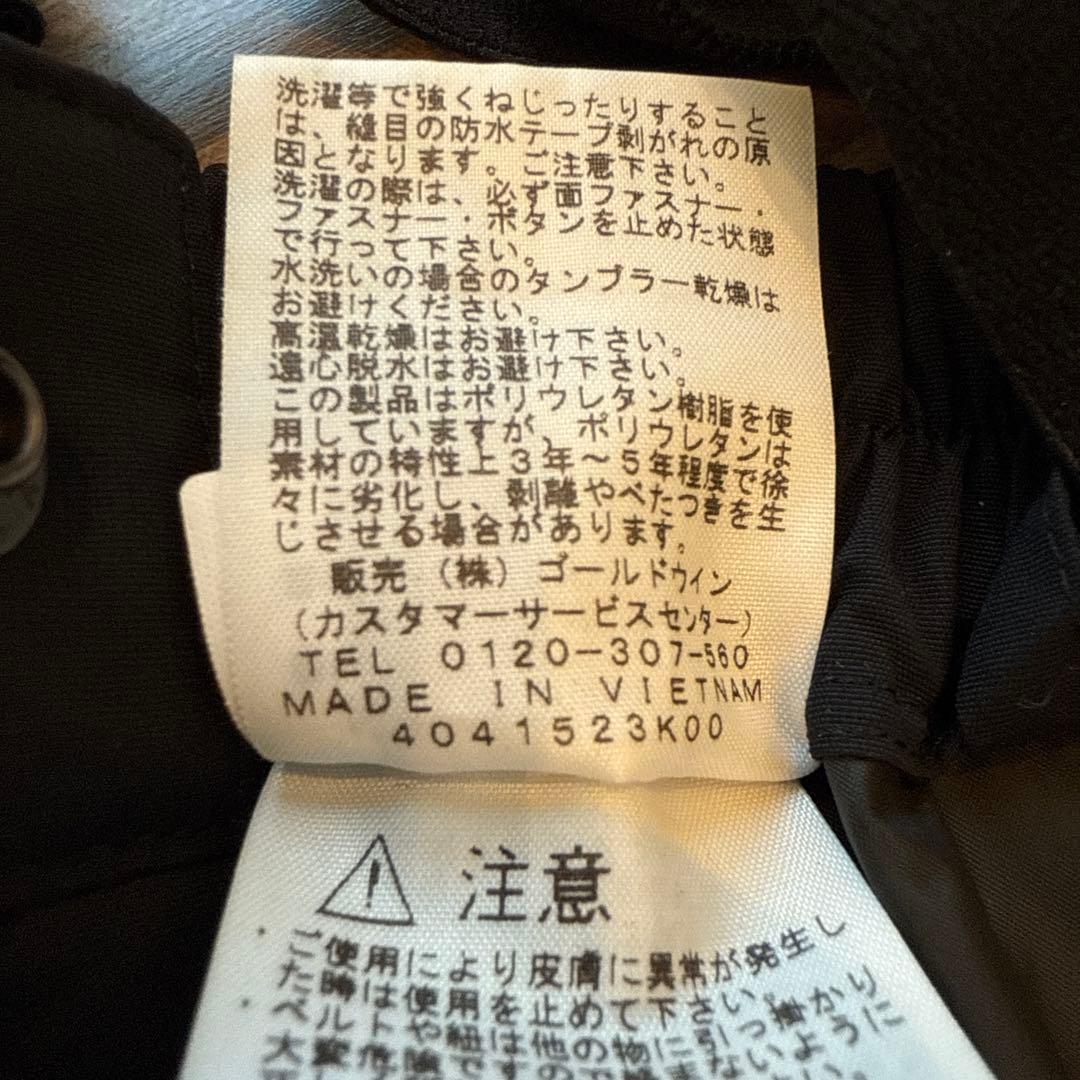 洗濯等で強くねじったりすること
は、縫目の防水テープ剥がれの原
因となります。ご注意下さい。
洗濯の際は、必ず面ファスナー・
ファスナー・ボタンを止めた状態
で行って下さい。
水洗いの場合のタンブラー乾燥は
お避けください。
高温乾燥はお避け下さい。
遠心脱水はお避け下さい。
この製品はポリウレタン樹脂を使
用していますが、ポリウレタンは
素材の特性上3年〜5年程度で徐
々に劣化し、剥離やべたつきを生
じさせる場合があります。
販売 (株) ゴールドウイン
(カスタマーサービスセンター)
TEL 0120-307-560
MADE IN VIETNAM
4041523K00
注意
・ご使用により皮膚に異常が発生し
た時は使用を止めて下さい。
・ベルトや紐は他の物に引っ掛かり